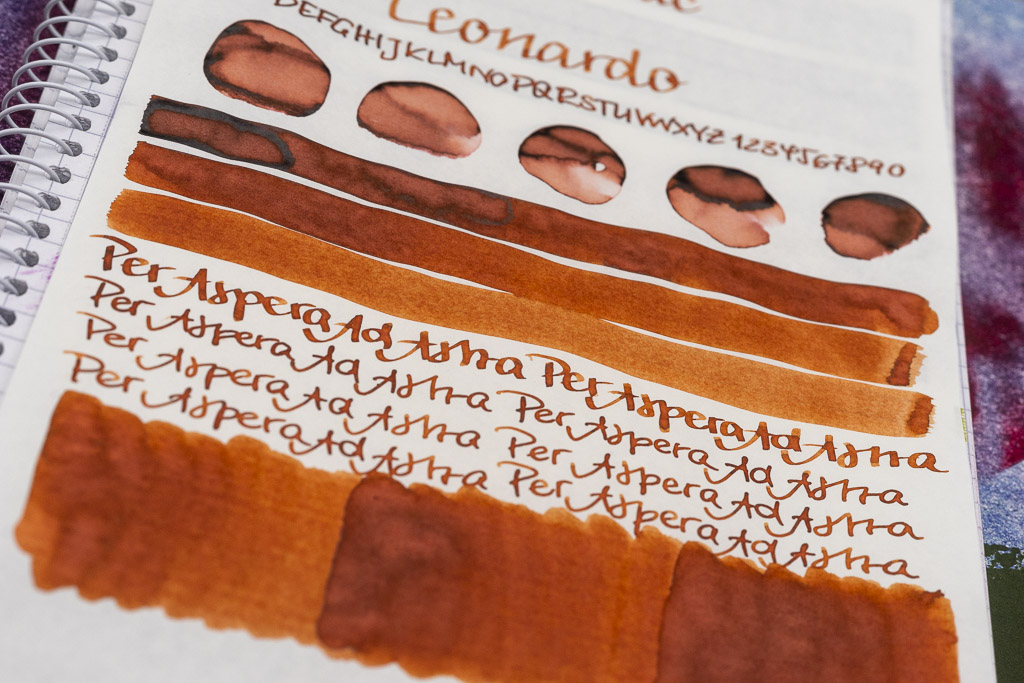 Leonardo
DEFGHIJKLMNOPQRSTUVWXYZ 1234567890
Per Aspera Ad Astra Per Aspera Ad Astra
Per Aspera Ad Astra Per Aspera Ad Astra
Per Aspera Ad Astra Per Aspera Ad Astra
Per Aspera Ad Astra Per Aspera Ad Astra